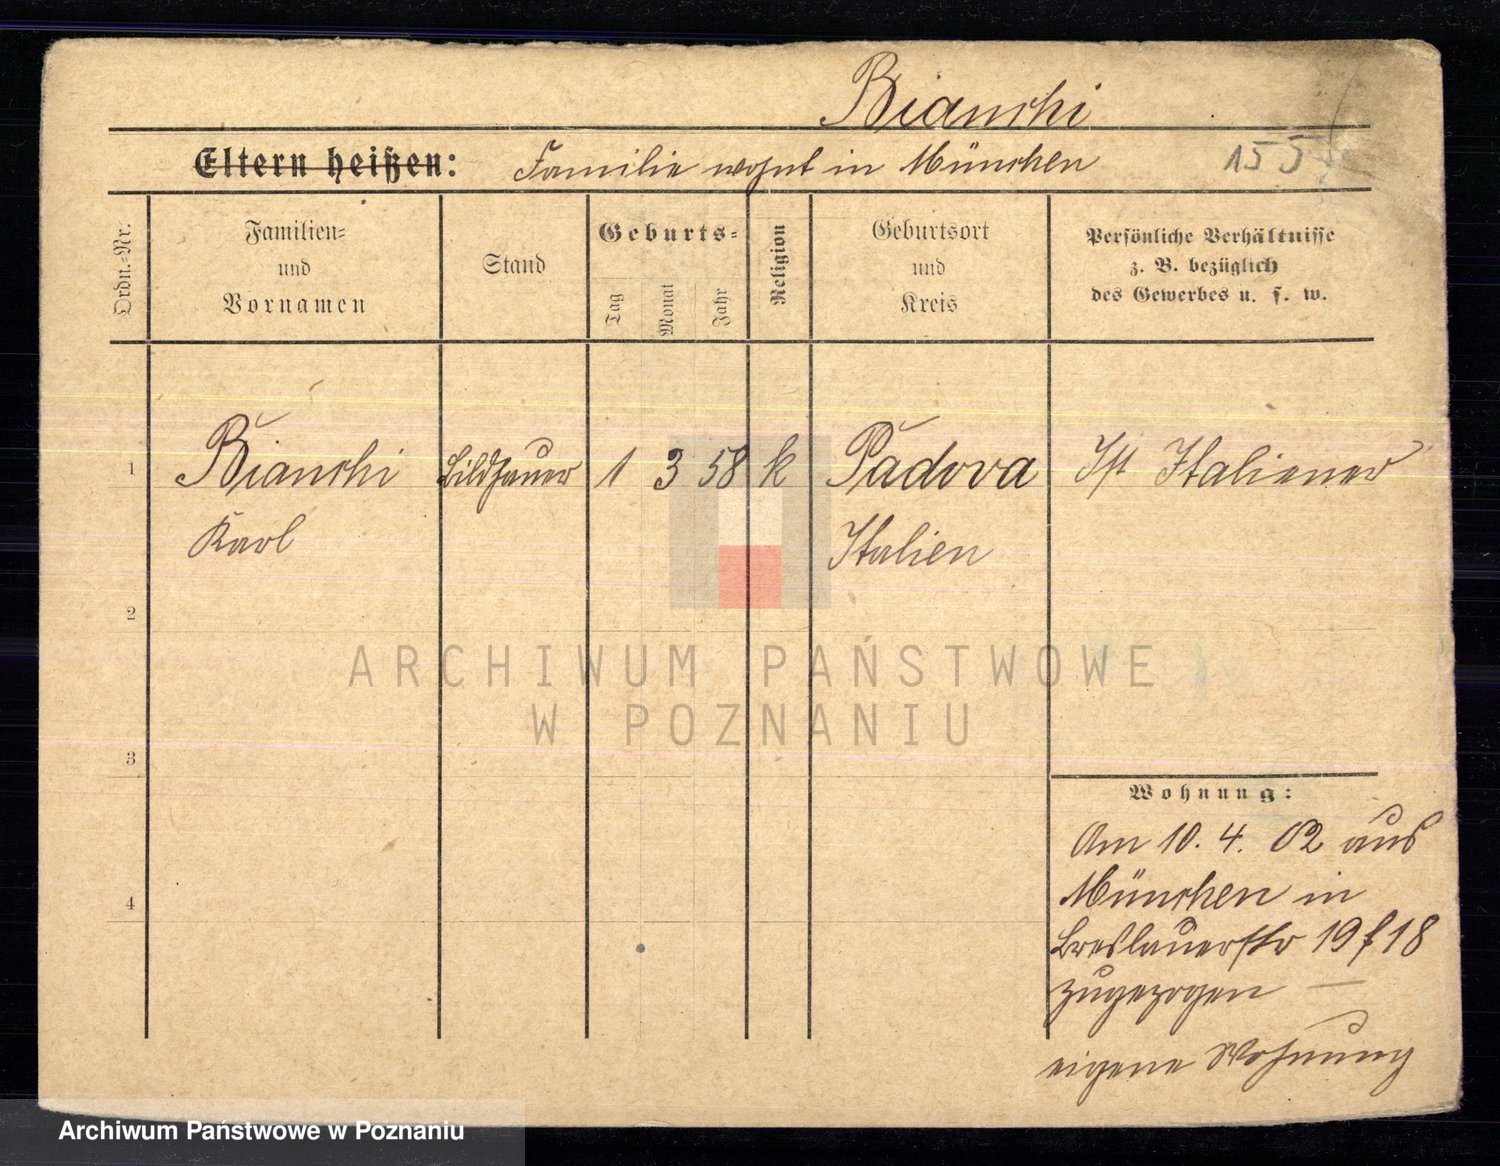 Bianchi
Eltern heißen: Familie wohnt in München 155
Ordn.-Nr.
Familien-
und
Vornamen
Stand
Geburts-
Tag
Monat
Jahr
Religion
Geburtsort
und
Kreis
Persönliche Verhältnisse
z. B. bezüglich
des Gewerbes u. s. w.
1 Bianchi Bildhauer 1 3 58 k Padova Ist Italiener
Karl Italien
2
ARCHIWUM PAŃSTWOWE
W POZNANIU
3
Wohnung:
Am 10. 4. 02 aus
München in
4
Breslauerstr 19 f 18
zugezogen —
eigene Wohnung
Archiwum Państwowe w Poznaniu